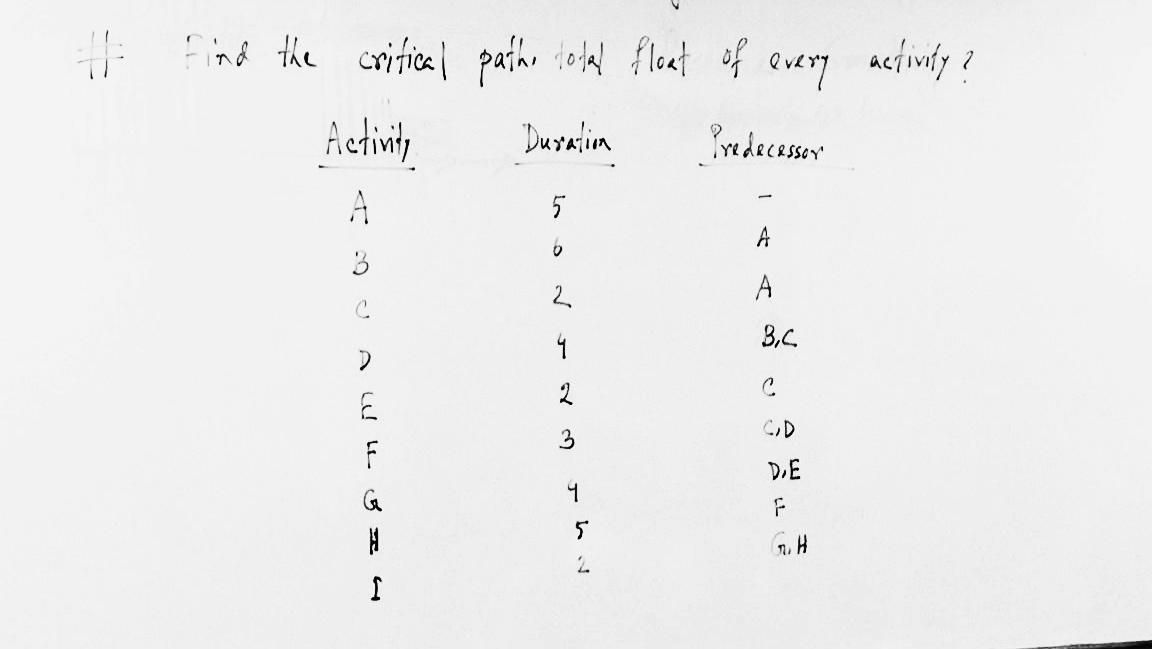 # Find the critical path, total float of every activity?
Activity Duration Predecessor
A 5 -
B 6 A
C 2 A
D 4 B,C
E 2 C
F 3 C,D
G 4 D,E
H 5 F
I 2 G,H